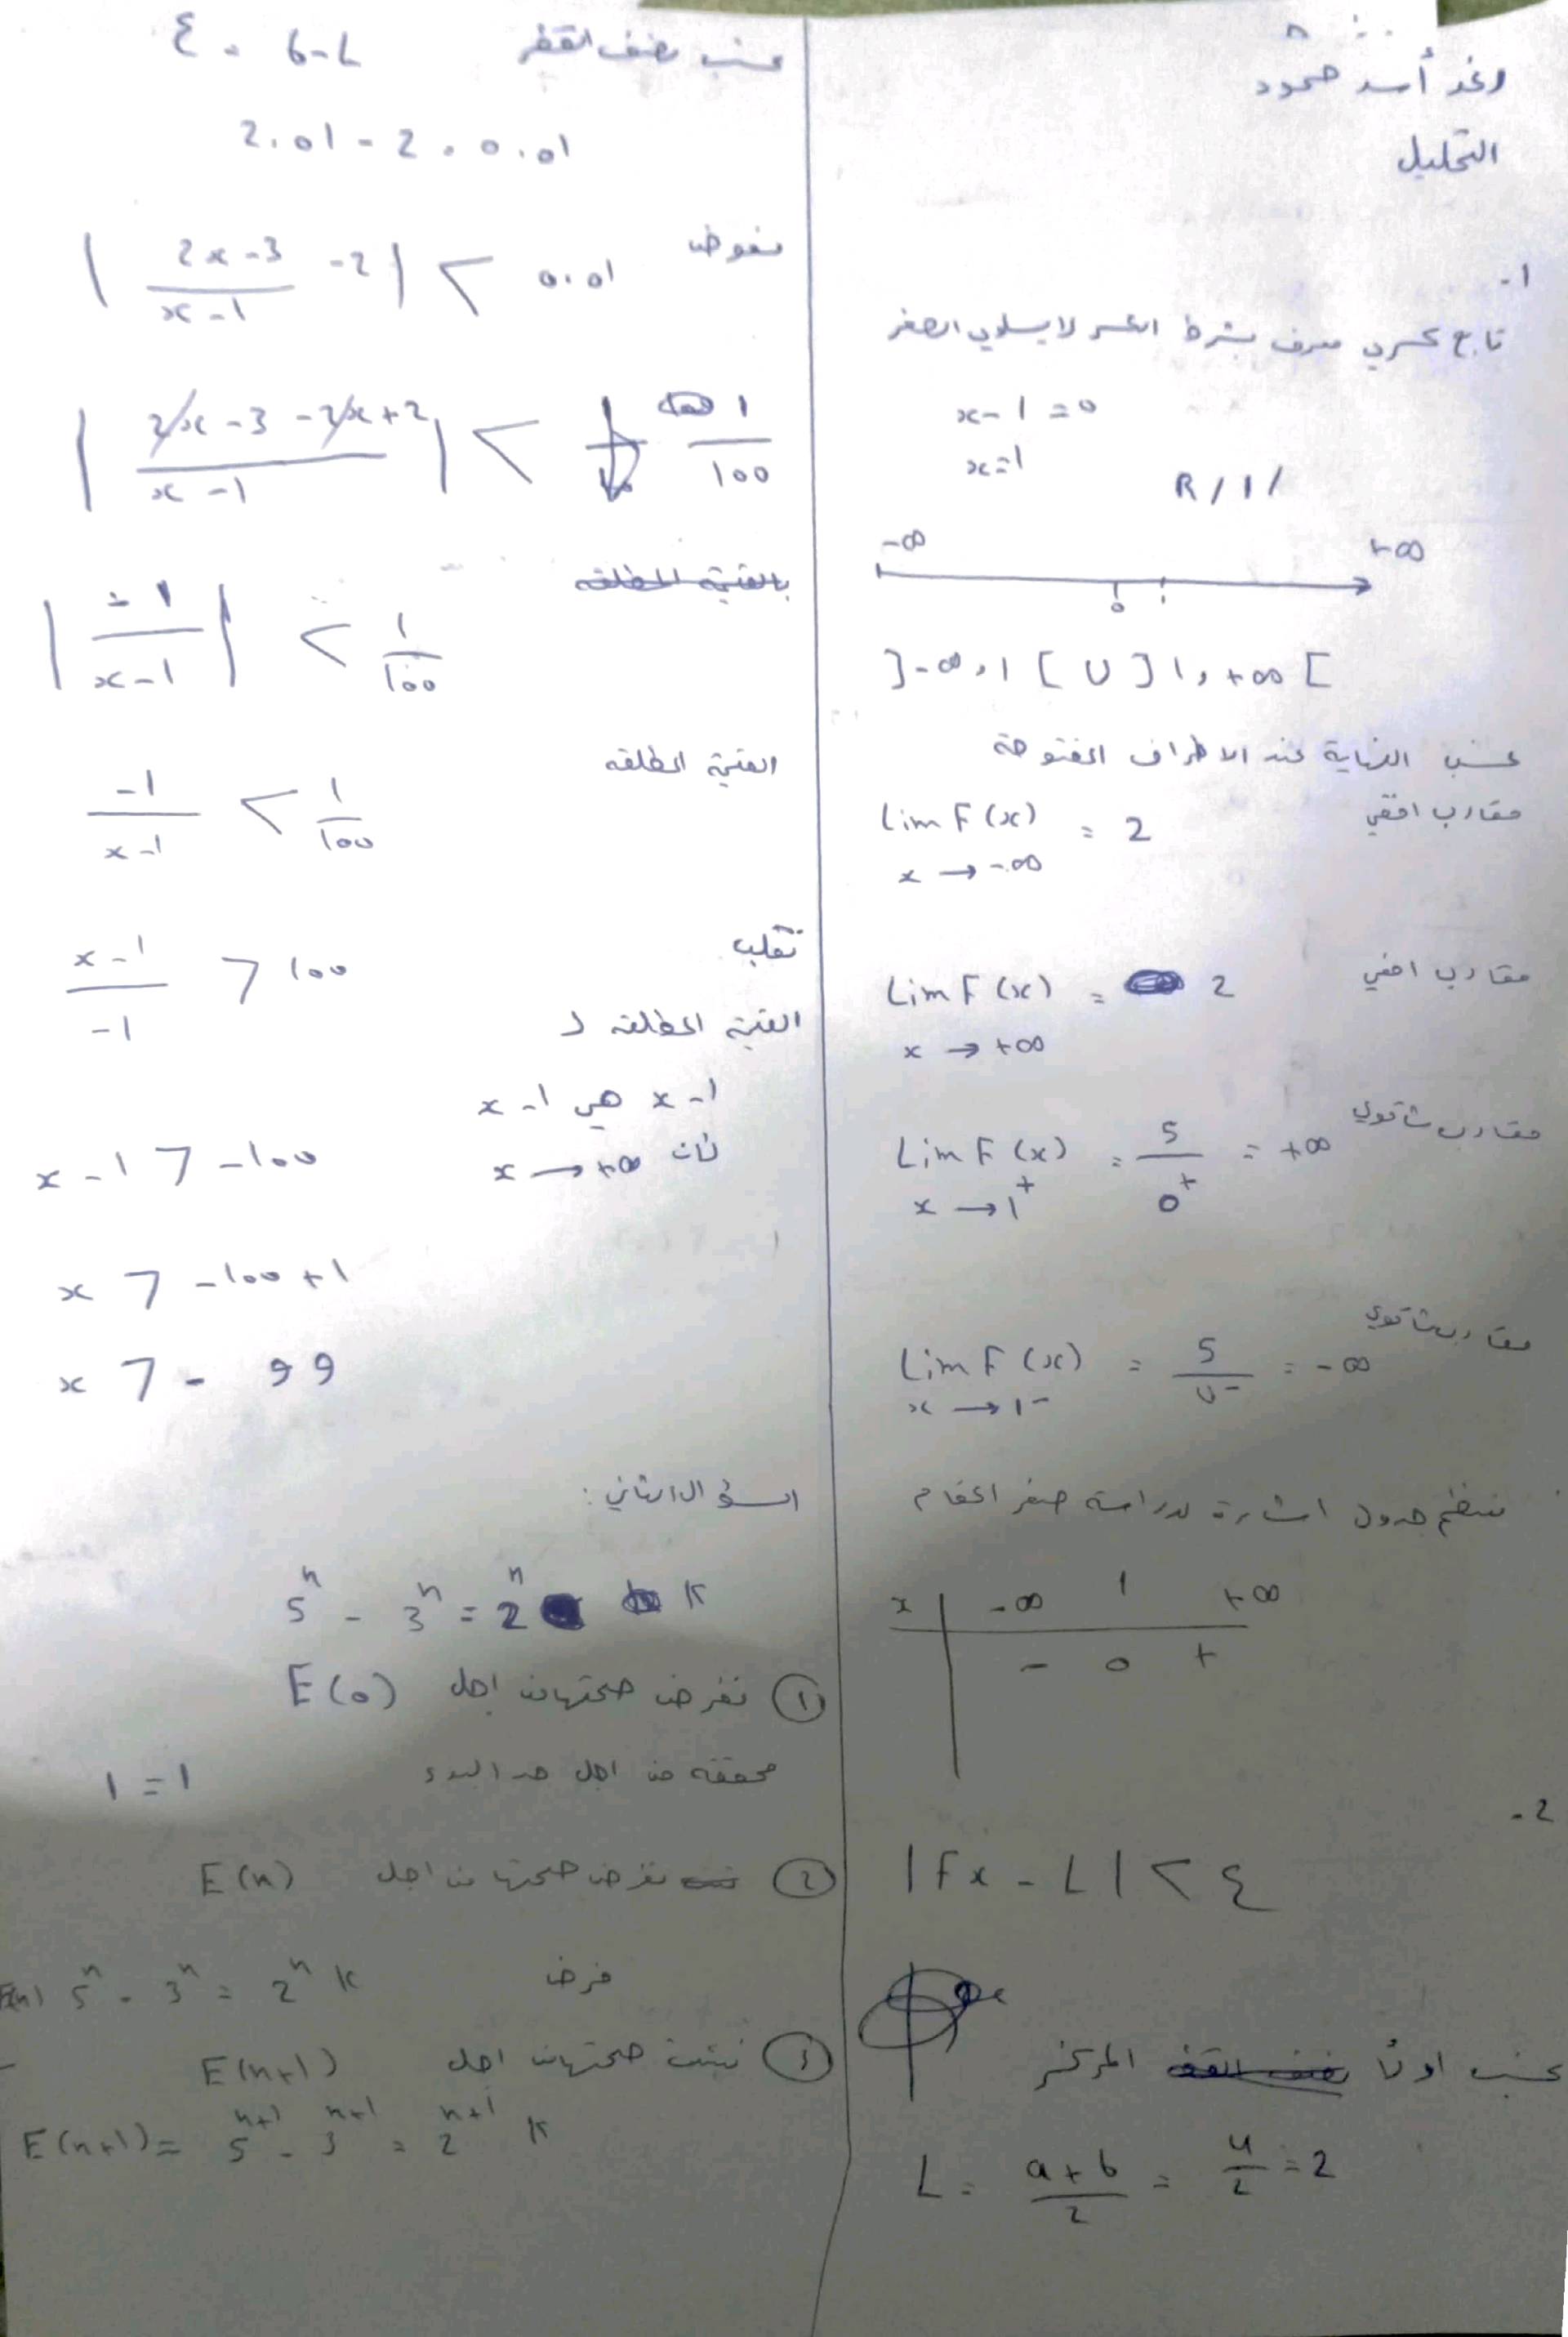 رغد أسد حمود
التحليل
1-
تابع كسري معرف بشرط الكسر لا يساوي الصفر
x-1=0
x=1
R/1/
-∞ +∞
0 1
]-∞,1[ U ]1,+∞[
نحسب النهاية عند الاطراف المفتوحة
Lim F(x) = 2 مقارب افقي
x → -∞
Lim F(x) = 2 مقارب افقي
x → +∞
Lim F(x) = 5/0⁺ = +∞ مقارب شاقولي
x → 1⁺
Lim F(x) = 5/0⁻ = -∞ مقارب شاقولي
x → 1⁻
ننظم جدول اشارة لدراسة صفر المقام
x | -∞ 1 +∞
- 0 +
2-
|Fx - L| < ε
نحسب اولاً المركز
L = (a+b)/2 = 4/2 = 2
نحسب نصف القطر ε = b-L
2.01 - 2 = 0.01
نعوض
|(2x-3)/(x-1) - 2| < 0.01
|(2x-3-2x+2)/(x-1)| < 1/100
بالقيمة المطلقة
|-1/(x-1)| < 1/100
القيمة المطلقة
-1/(x-1) < 1/100
نقلب
(x-1)/-1 > 100
القيمة المطلقة لـ
x-1 هي x-1
x-1 > -100
لأن x → +∞
x > -100+1
x > -99
السؤال الثاني:
5ⁿ - 3ⁿ = 2ⁿ K
① نفرض صحتها من اجل E(0)
محققة من اجل حد البدء 1=1
② نفرض صحتها من اجل E(n)
فرض E(n) 5ⁿ - 3ⁿ = 2ⁿ K
③ نثبت صحتها من اجل E(n+1)
E(n+1) = 5ⁿ⁺¹ - 3ⁿ⁺¹ = 2ⁿ⁺¹ K